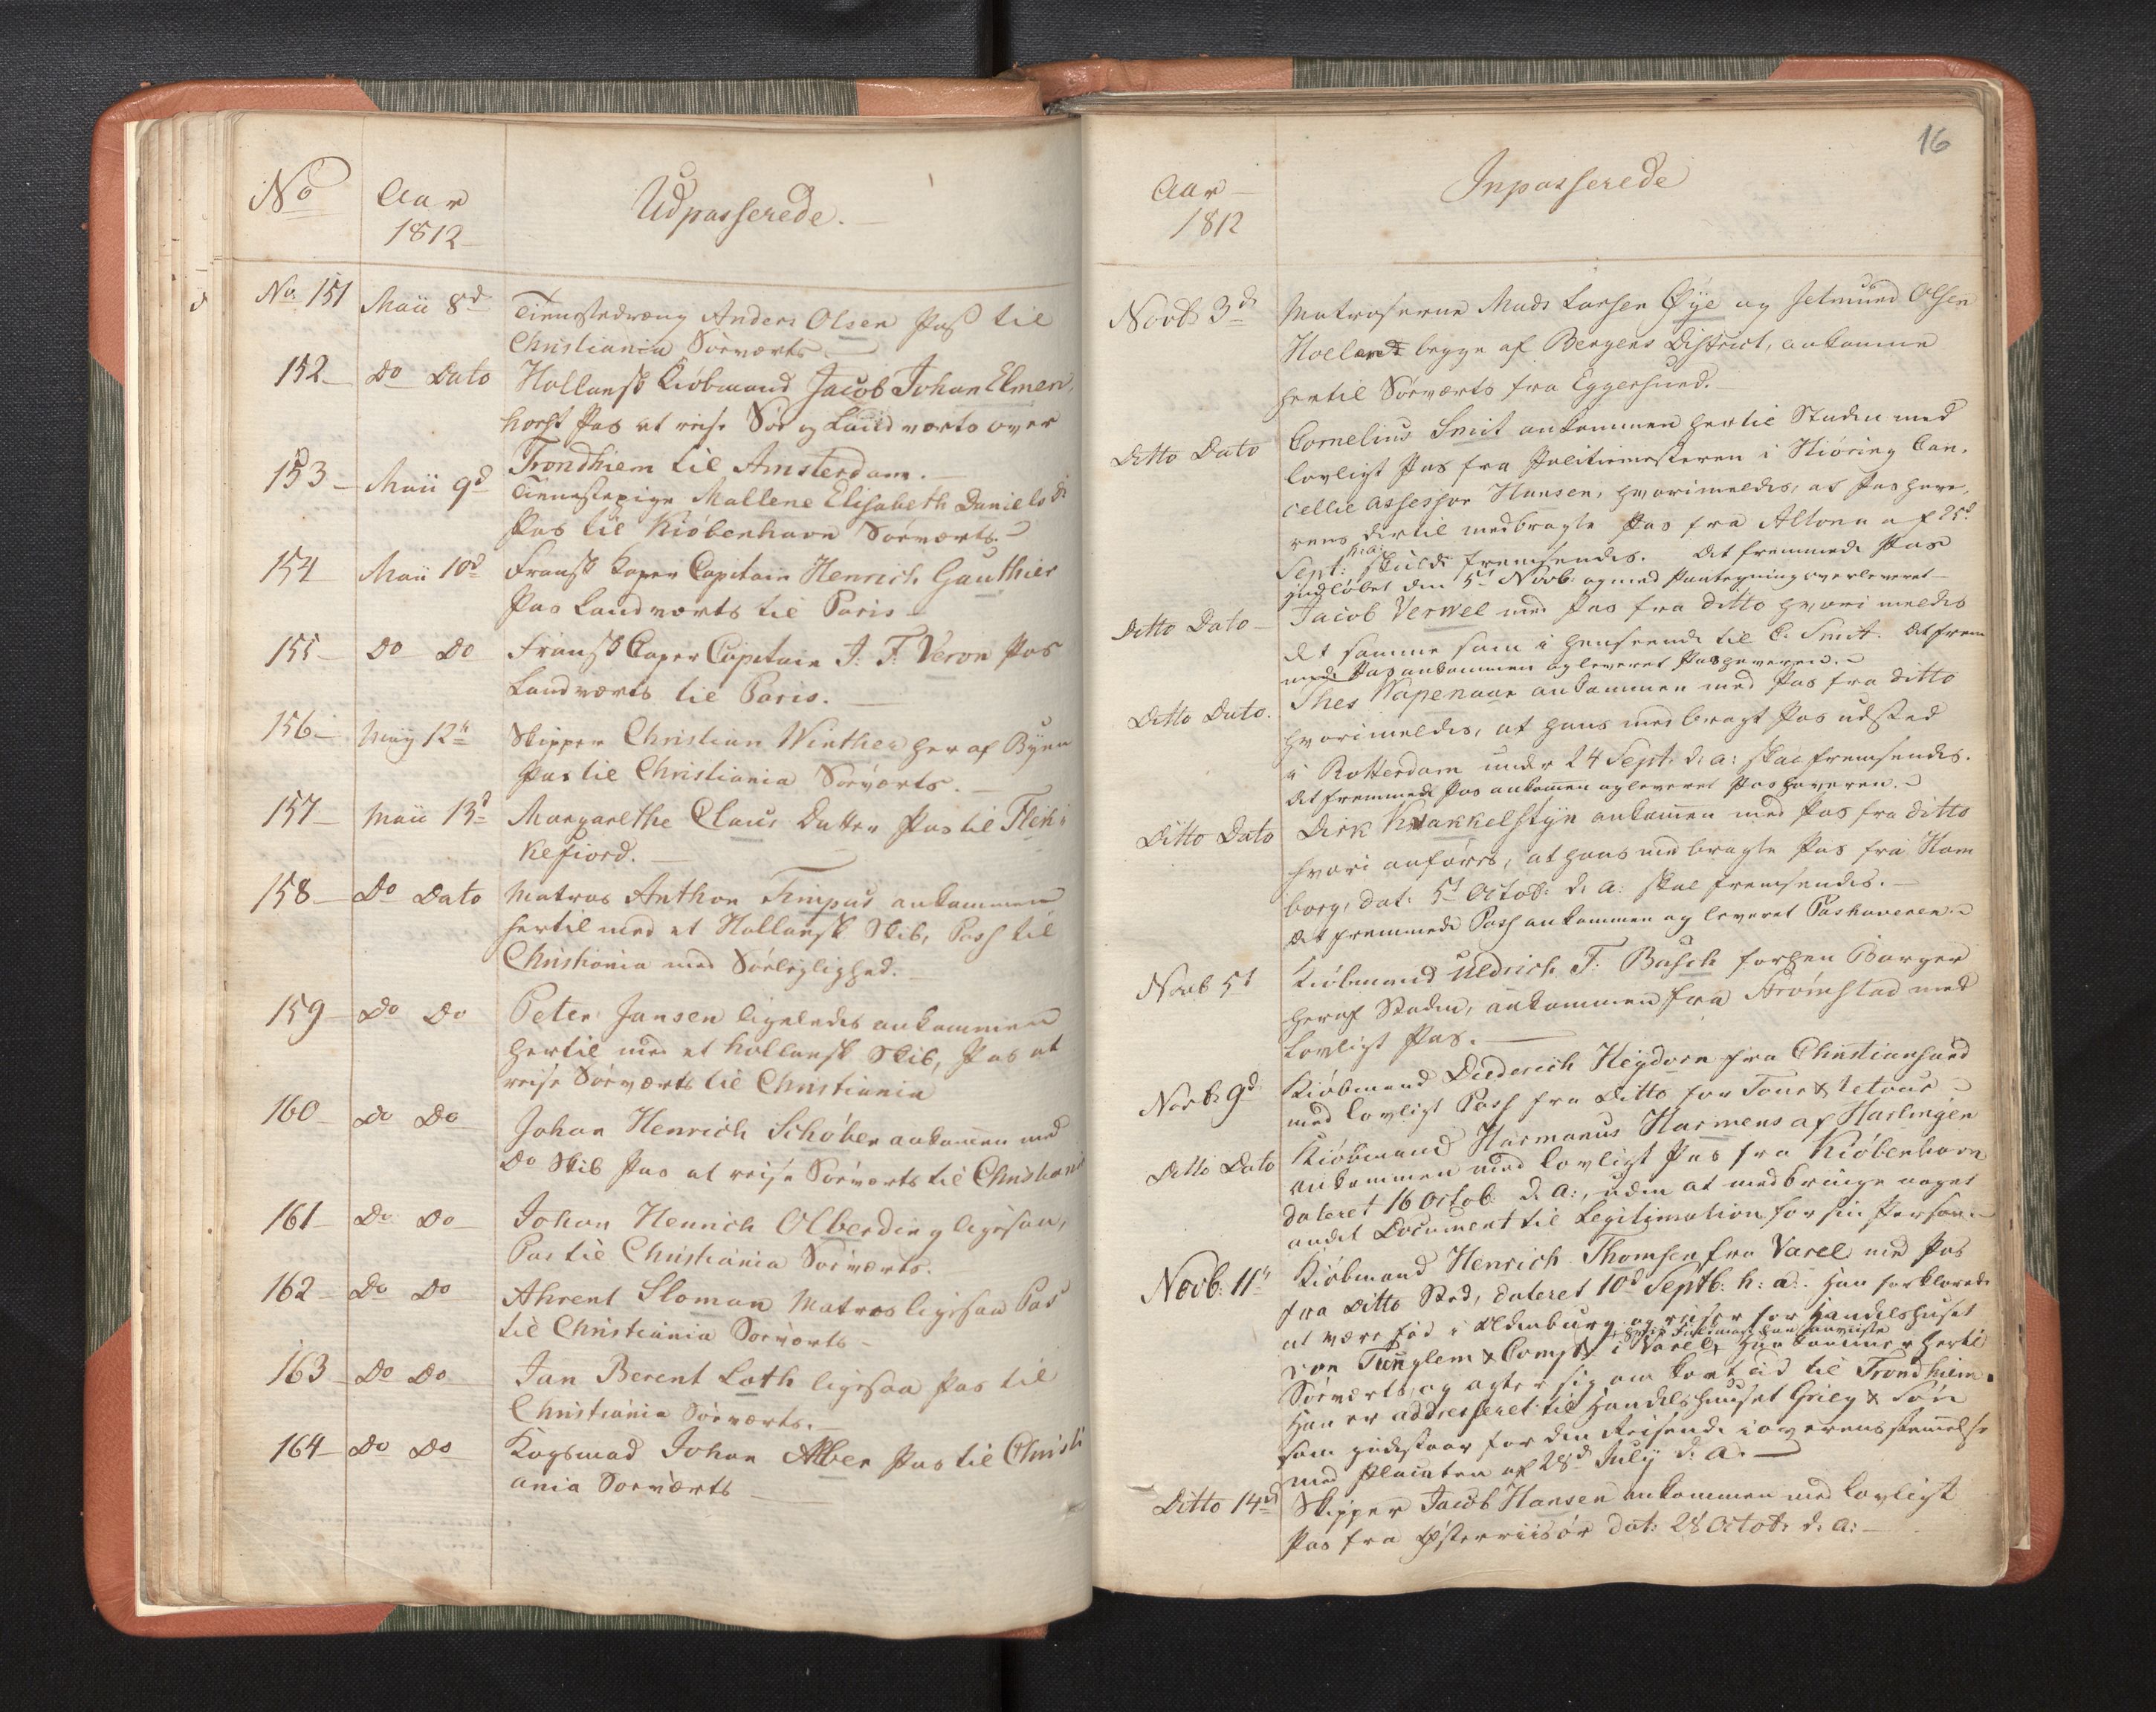 No
Aar
1812
Udpasserede.
No 151
Maii 8d
Tienestedreng Anders Olsen Pass til
Christiania Söeværts
152
Do Dato
Hollansk Kiöbmand Jacob Johan Elmen,
horst Pas at reise Söe og Landværts over
Trondhiem til Amsterdam.
153
Maii 9d
Tienestepige Mallene Elisabeth Daniels Dr
Pas til Kiöbenhavn Söeværts.
154
Maii 10d
Fransk Kaper Capitain Henrich Gauthier
Pas Landværts til Paris
155
Do Do
Fransk Caper Capitain J. F. Veron Pas
Landværts til Paris.
156
May 12te
Skipper Christian Winther her af Byen
Pas til Christiania Söeværts.
157
Maii 13d
Margarethe Claus Datter Pas til Flek:
kefiord.
158
Do Dato
Matros Anthon Timpus ankommen
hertil med et Hollansk Skib, Pass til
Christiania med Söeleylighed.
159
Do Do
Peter Jansen ligeledes ankommen
hertil med et hollansk Skib, Pas at
reise Söeværts til Christiania
160
Do Do
Johan Henrich Schöber ankomen med
Do Skib Pas at reise Söeværts til Christiania
161
Do Do
Johan Henrich Olberding ligesaa,
Pas til Christiania Söeværts.
162
Do Do
Ahrent Sloman Matros ligesaa Pas
til Christiania Soeværts
163
Do Do
Jan Berent Loth ligesaa Pas til
Christiania Söeværts.
164
Do Do
Kogsmad Johan Alber Pas til Christi
ania Soeværts
16
Aar
1812
Inpasserede
Novb 3d
Matroserne Mads Larsen Øye og Jetmund Olsen
Hoeland begge af Bergens District, ankomne
hertil Söeværts fra Eggersund.
Ditto Dato
Cornelius Smit ankommen hertil Staden med
lovligt Pas fra Politiemesteren i Hiöring Can,
cellie Assessor Hansen, hvori meldes, at Pashave,
rens dertil medbragte Pas fra Altona af 25d
Sept: h: a: skulde fremsendes. Det fremmede Pas
indlöbet den 5d Novb: og med Paategning overleveret
Ditto Dato
Jacob Verwel med Pas fra ditto hvori meldes
det samme som i henseende til C. Smit. Det frem
mede Pas ankommen og leveret Pashaveren.
Ditto Dato.
Thes Wapenaar ankommen med Pas fra ditto
hvori meldes, at hans medbragt Pas udsted
i Rotterdam under 24 Sept: d: a: skal fremsendes.
Det fremmede Pas ankomen og leveret Pashaveren.
Ditto Dato
Dirk Krakkelstyn ankomen med Pas fra ditto
hvori anföres, at hans medbragte Pas fra Ham
borg, dat: 5t Octob: d: a: skal fremsendes.
Det fremmede Pass ankommen og leveret Pashaveren.
Novb 5t
Kiöbmand Uldrich F. Busch forhen Borger
her af Staden, ankommen fra Strömstad med
Lovligt Pas.
Novb 9d
Kiöbmand Diederich Heydorn fra Christiansand
med lovligt Pass fra Ditto for Tour & Retour
Ditto Dato
Kiöbmand Harmanus Harmens af Harlingen
ankommen med lovligt Pas fra Kiöbenhavn
dateret 16 Octob d: a:, uden at medbringe noget
andet Document til Legitimation for sin Person.
Novb. 11te
Kiöbmand Henrich Thomsen fra Varel med Pas
fra Ditto Sted, dateret 10d Septb: h: a:. Han forklarede
at være föd i Oldenburg og reiser for Handelshuset
von Tunglem & Comp: i Varel, Han kommer hertil
Söeværts, og agter sig om kort tid til Trondhiem.
Han er addresseret til Handelshuuset Grieg & Sön
som indestaar for den Reisende i overensstemmelse
med Placaten af 28d July d: a:
Ditto 14de
Skipper Jacob Hansen ankommen med lovligt
Pas fra Østerriisör dat: 28 Octob: d: a: